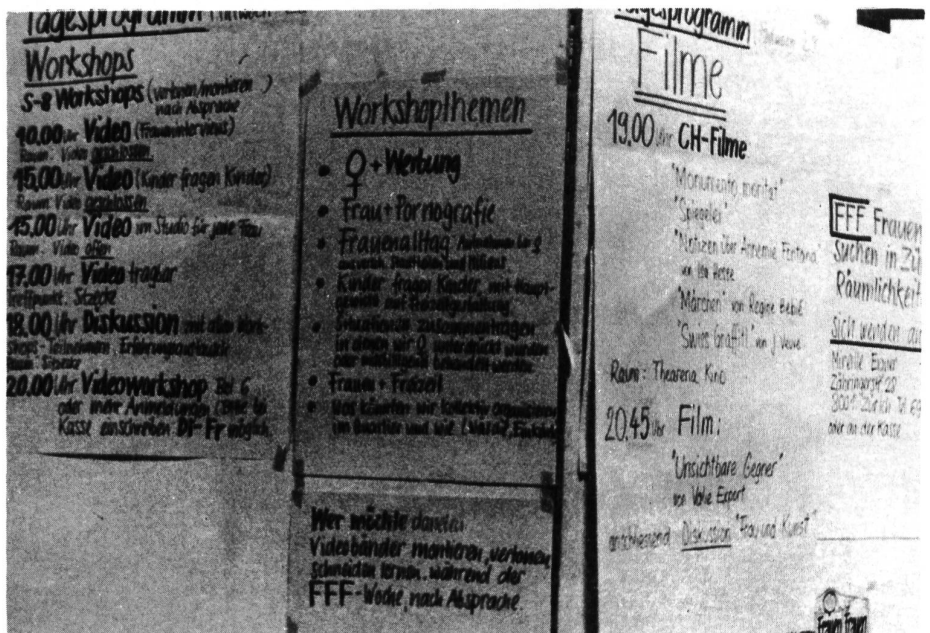 Tagesprogramm
Workshops
S-8 Workshops (vertonen/montieren)
nach Absprache
10.00 Uhr Video (Fraueninterviews)
Raum: Video geschlossen
15.00 Uhr Video (Kinder fragen Kinder)
Raum: Video geschlossen
15.00 Uhr Video im Studio für jede Frau
Raum: Video offen
17.00 Uhr Video tragbar
Treffpunkt: Sitzecke
18.00 Uhr Diskussion mit allen Work-
shops-Teilnehmern, Erfahrungsaustausch
Raum: Sitzecke
20.00 Uhr Videoworkshop Bei 6
oder mehr Anmeldungen (bitte bei
Kasse einschreiben Di-Fr möglich
Workshopthemen
• ♀ + Werbung
• Frau + Pornografie
• Frauenalltag
• Kinder fragen Kinder, mit Haupt-
• Situationen zusammentragen
in denen wir
• Frauen + Freizeit
• Was könnten wir kollektiv organisieren
im Quartier und wie
Wer möchte daneben
Videobänder montieren, vertonen,
schneiden lernen. während der
FFF-Woche, nach Absprache.
Tagesprogramm
Filme
19.00 Uhr CH-Filme
"Monumento moritat"
"Spieglei"
"Notizen über Annemie Fontana"
von Isa Hesse
"Märchen" von Regine Bebié
"Swiss Graffiti" von J. Veuve
Raum: Thearena Kino
20.45 Uhr Film:
"Unsichtbare Gegner"
von Valie Export
anschliessend Diskussion "Frau und Kunst"
FFF Frauen
suchen in Zü
Räumlichkeit
sich wenden an
Mireille
Zähringerstr 28
8001 Zürich Tel 69
oder an der Kasse
Frauen Frauen